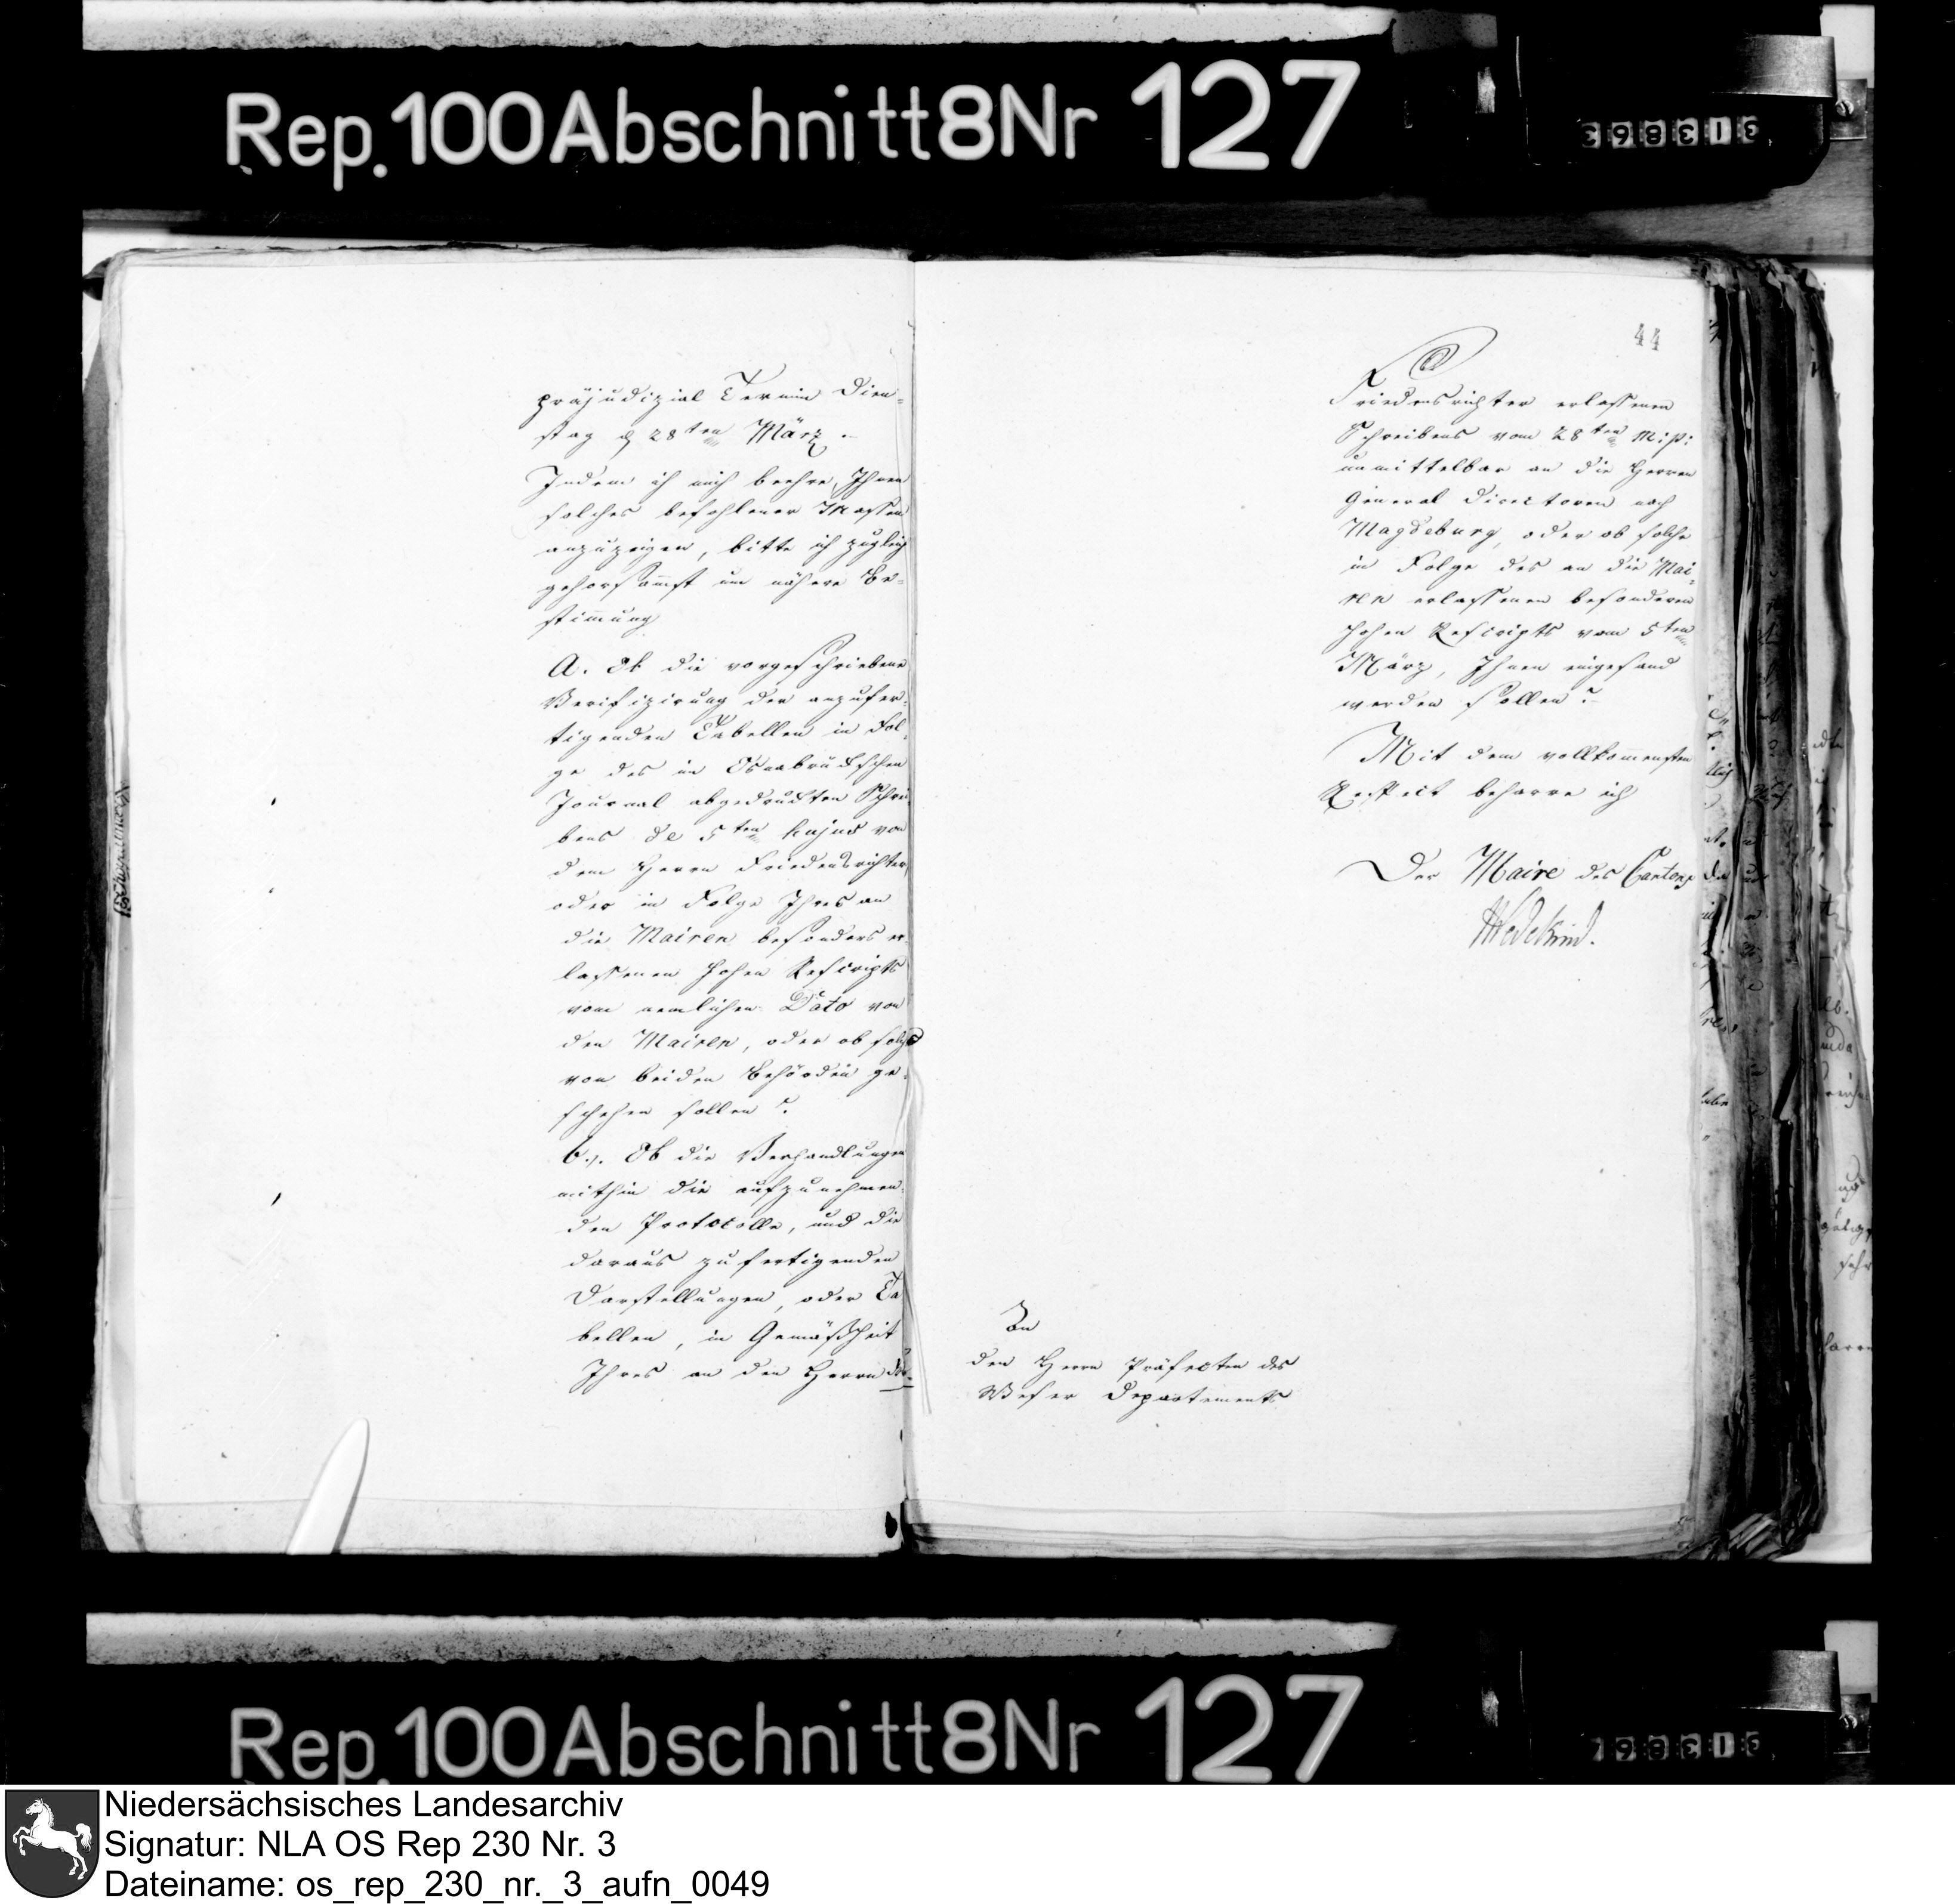 Rep. 100 Abschnitt 8 Nr 127
313863
präjudizial Termin Dien=
stag d 28ten März.
Indem ich mich beehre, Ihnen
solches befohlener Massen
anzuzeigen, bitte ich zugleich
gehorsamst um nähere Be=
stimmung
A. Ob die vorgeschriebene
Verifizirung der anzufer=
tigenden Tabellen in Fol=
ge des im Osnabrückschen
Journal abgedruckten Schrei
bens de 5ten hujus von
dem Herrn Friedensrichter
oder in Folge Ihres an
die Mairen besonders er=
lassenen hohen Rescripts
vom nemlichen Dato von
den Mairen, oder ob solche
von beiden Behörden ge=
schehen sollen?
b.). Ob die Verhandlungen
mithin die aufzunehmen=
den Protocolle, und die
daraus zu fertigenden
Darstellungen, oder Ta
bellen, in Gemäßheit
Ihres an den Herrn
44
Friedensrichter erlassenen
Schreibens vom 28ten
unmittelbar an die Herren
General Directoren nach
Magdeburg, oder ob solche
in Folge des an die Mai=
ren erlassenen besonderen
hohen Rescripts vom 5ten
März, Ihnen eingesand
werden sollen?
Mit dem vollkommensten
Respect beharre ich
Der Maire des Cantons
Wedekind.
An
den Herrn Präfecten des
Weser Departements
Rep. 100 Abschnitt 8 Nr 127
Niedersächsisches Landesarchiv
Signatur: NLA OS Rep 230 Nr. 3
Dateiname: os_rep_230_nr._3_aufn_0049